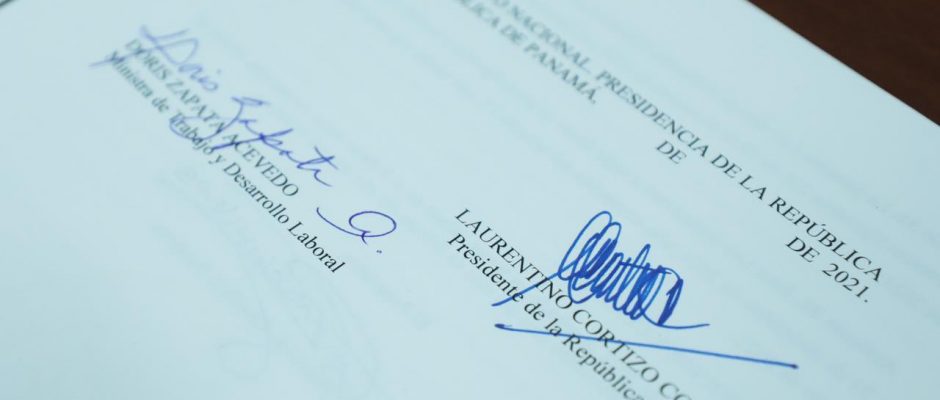 O NACIONAL PRESIDENCIA DE LA REPÚBLICA
BLICA DE PANAMÁ.
DE
DE 2021.
Doris Zapata A.
DORIS ZAPATA ACEVEDO
Ministra de Trabajo y Desarrollo Laboral
LAURENTINO CORTIZO CO
Presidente de la República